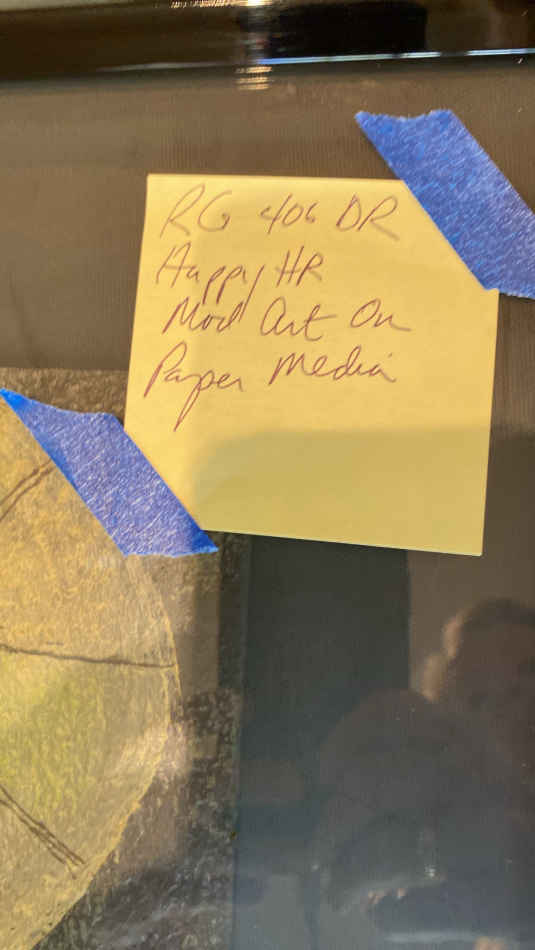 RG 406 DR
Happy HR
Mod Art On
Paper Media